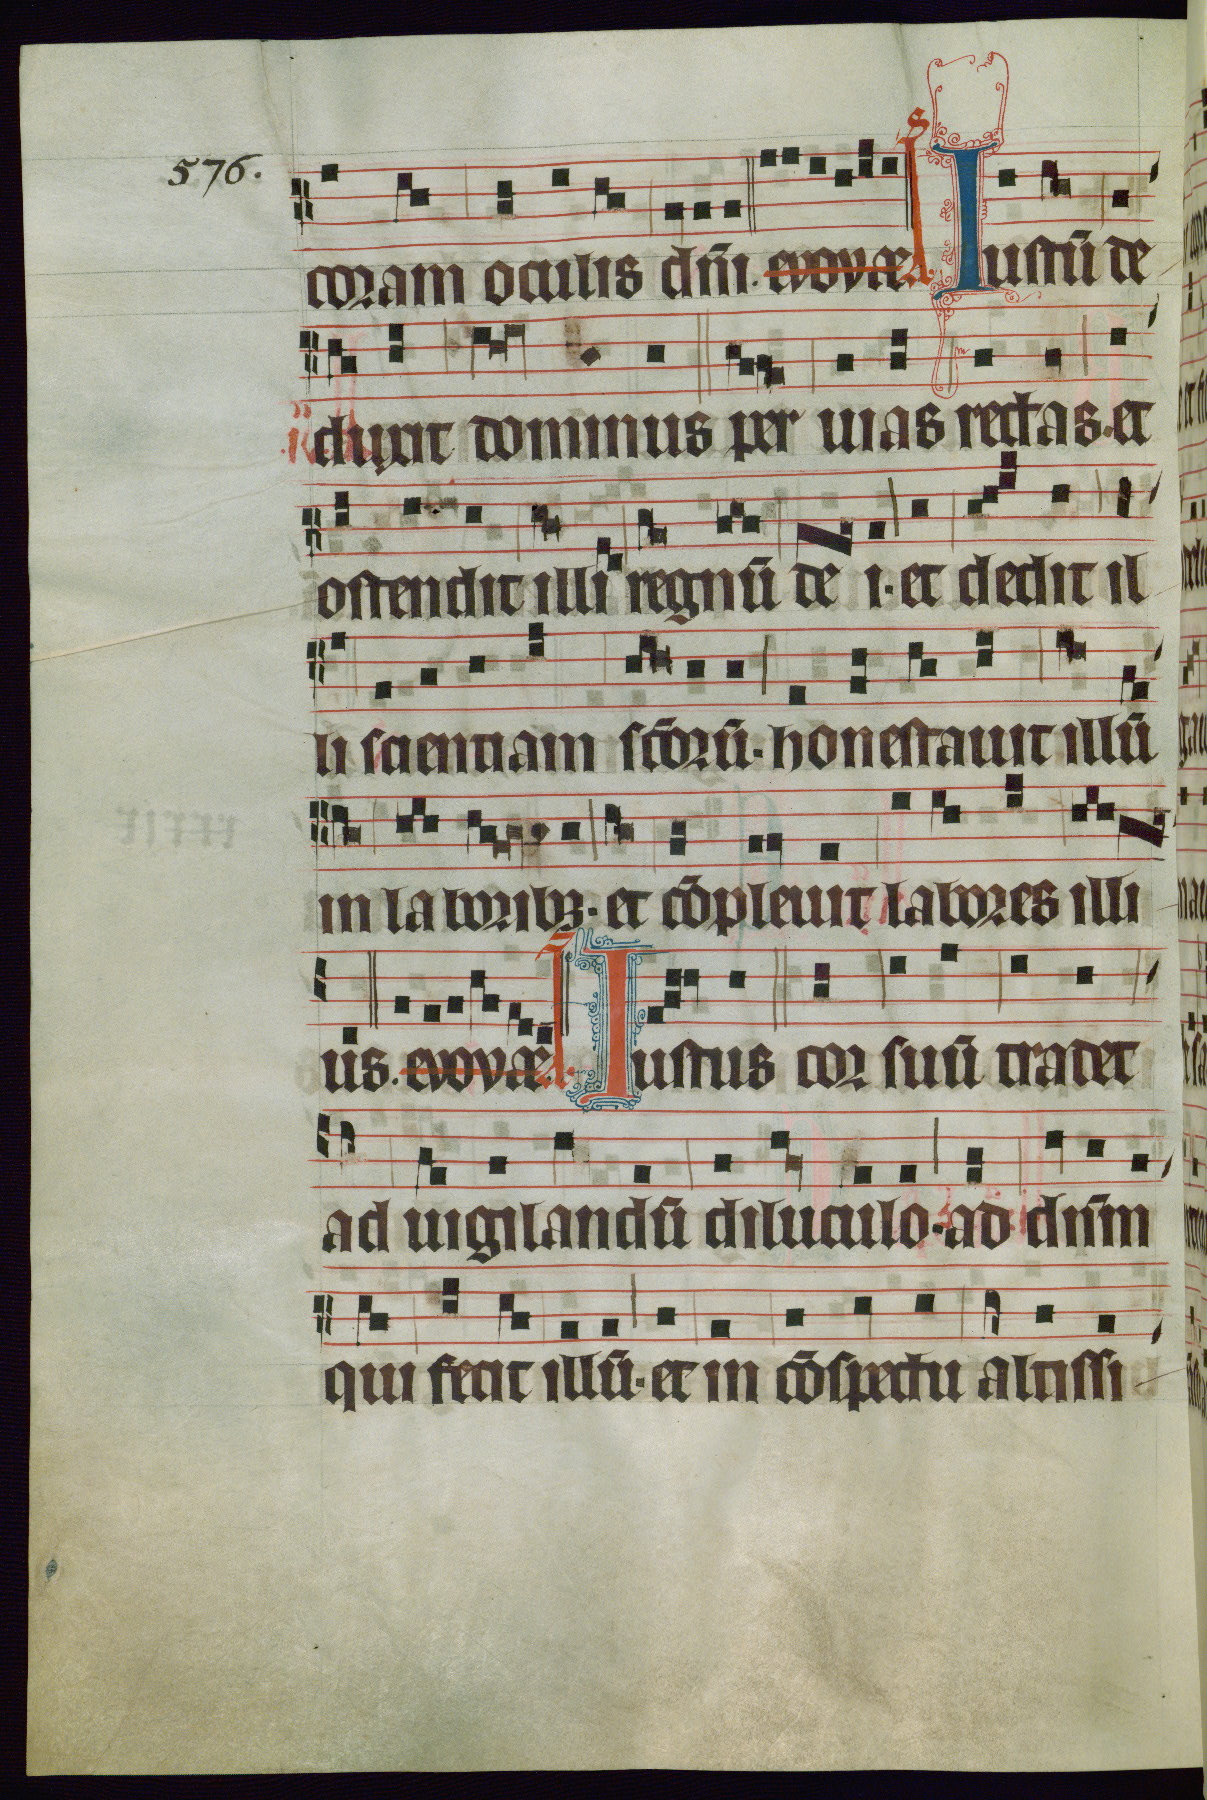 576.
coram oculis dn̄i. evovæ A. Iustū de
duxit dominus per uias rectas. et
ostendit illi regnū de i. et dedit il
li scientiam sc̄orū. honestauit illū
in laboribꝫ. et cōpleuit labores illi
us. evovæ A. Iustus cor suū tradet
ad uigilandū diluculo. ad dn̄m
qui fecit illū. et in cōspectu altissi